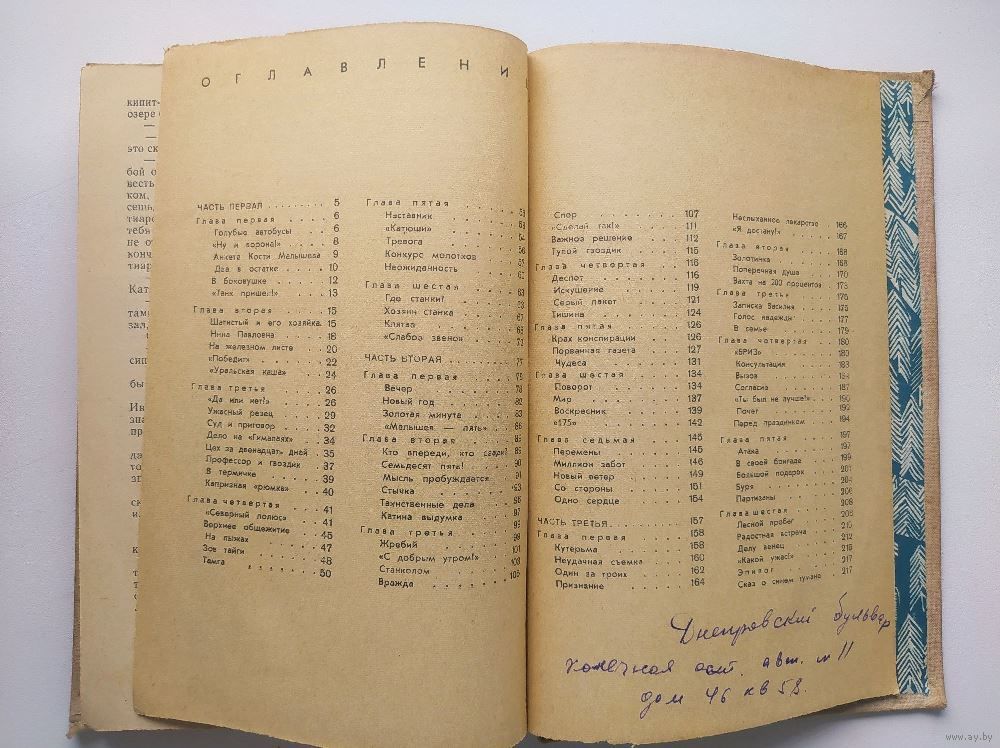 кипит-
озере
—
—
это ск
—
бой о
весть
ком,
сешь,
тиаро
тебя
не от
конч
тиар
Кат
—
там
зал,
сип
бы
Ин
зна
пр
да
то
эп
с
и.
к
О Г Л А В Л Е Н И
ЧАСТЬ ПЕРВАЯ . . . . . . . . 5
Глава первая . . . . . 6
Голубые автобусы . . . . 6
«Ну и ворона!» . . . . 8
Анкета Кости Малышева 9
Два в остатке . . . . 10
В боковушке . . . . 12
«Танк пришел!» . . . . 13
Глава вторая . . . . . 15
Шатистый и его хозяйка. 15
Нина Павловна . . . . 18
На железном листе . . . 20
«Победит» . . . . . . 22
«Уральская каша» . . . 24
Глава третья . . . . . 26
«Да или нет!» . . . . 26
Ужасный резец . . . . 29
Суд и приговор . . . . 32
Дело на «Гималаях» . . 34
Цех за двенадцать дней . 35
Профессор и гвоздик . . 37
В термичке . . . . . 39
Капризная «рюмка» . . 40
Глава четвертая . . . . 41
«Северный полюс» . . . 41
Верхнее общежитие . . 45
На лыжах . . . . . . 47
Зов тайги . . . . . . 48
Тамга . . . . . . . 50
Глава пятая . . . . .
Наставник . . . . .
«Катюши» . . . . .
Тревога . . . . . .
Конкурс молотков . . .
Неожиданность . . . .
Глава шестая . . . . 63
Где станки? . . . . .
Хозяин станка . . . . 67
Клятва . . . . . . 69
«Слабое звено» . . . . 73
ЧАСТЬ ВТОРАЯ . . . . . .
Глава первая . . . . .
Вечер . . . . . . . 78
Новый год . . . . . 82
Золотая минута . . . . 83
«Малышев — пять» . . . 86
Глава вторая . . . .
Кто впереди, кто сзади? .
Семьдесят пять! . . . . 90
Мысль пробуждается . .
Стычка . . . . . .
Таинственные дела . . . 96
Катина выдумка . . . . 97
Глава третья . . . . 99
Жребий . . . . . . 101
«С добрым утром!» . . . 103
Станколом . . . . . 105
Вражда . . . . . .
Спор . . . . . . . 107
«Сделай так!» . . . . 111
Важное решение . . . . 112
Тупой гвоздик . . . . 116
Глава четвертая . . . 116
Деспот . . . . . . 116
Искушение . . . . . 119
Серый пакет . . . . . 121
Тишина . . . . . . 124
Глава пятая . . . . . 126
Крах конспирации . . . 126
Порванная газета . . . 127
Чудеса . . . . . . . 131
Глава шестая . . . . . 134
Поворот . . . . . . 134
Мир . . . . . . . . 137
Воскресник . . . . . 139
«175» . . . . . . . 142
Глава седьмая . . . . 145
Перемены . . . . . . 145
Миллион забот . . . . 146
Новый ветер . . . . . 149
Со стороны . . . . . 151
Одно сердце . . . . . 154
ЧАСТЬ ТРЕТЬЯ . . . . . . 157
Глава первая . . . . . 158
Кутерьма . . . . . . 158
Неудачная съемка . . . 160
Один за троих . . . . 162
Признание . . . . . 164
Неслыханное лекарство . 166
«Я достану!» . . . . . 167
Глава вторая . . . . 168
Золотинка . . . . . 168
Поперечная душа . . . 170
Вахта на 200 процентов 173
Глава третья . . . . 175
Записка Василия . . . 175
Голос надежды . . . . 177
В семье . . . . . . 179
Глава четвертая . . . 180
«БРИЗ» . . . . . . 180
Консультация . . . . 183
Вызов . . . . . . . 184
Согласие . . . . . . 187
«Ты был не лучше!» . . 190
Почет . . . . . . . 192
Перед праздником . . . 194
Глава пятая . . . . 197
Атака . . . . . . . 197
В своей бригаде . . . 199
Большой подарок . . . 201
Буря . . . . . . . 204
Партизаны . . . . . 206
Глава шестая . . . . 208
Лесной пробег . . . . 208
Радостная встреча . . . 210
Делу венец . . . . . 212
«Какой ужас!» . . . . 216
Эпилог . . . . . . . 217
Сказ о синем тумане . . 217
Днепровский бульвар
конечная ост. авт. № 11
дом 46 кв 53.
www.ay.by